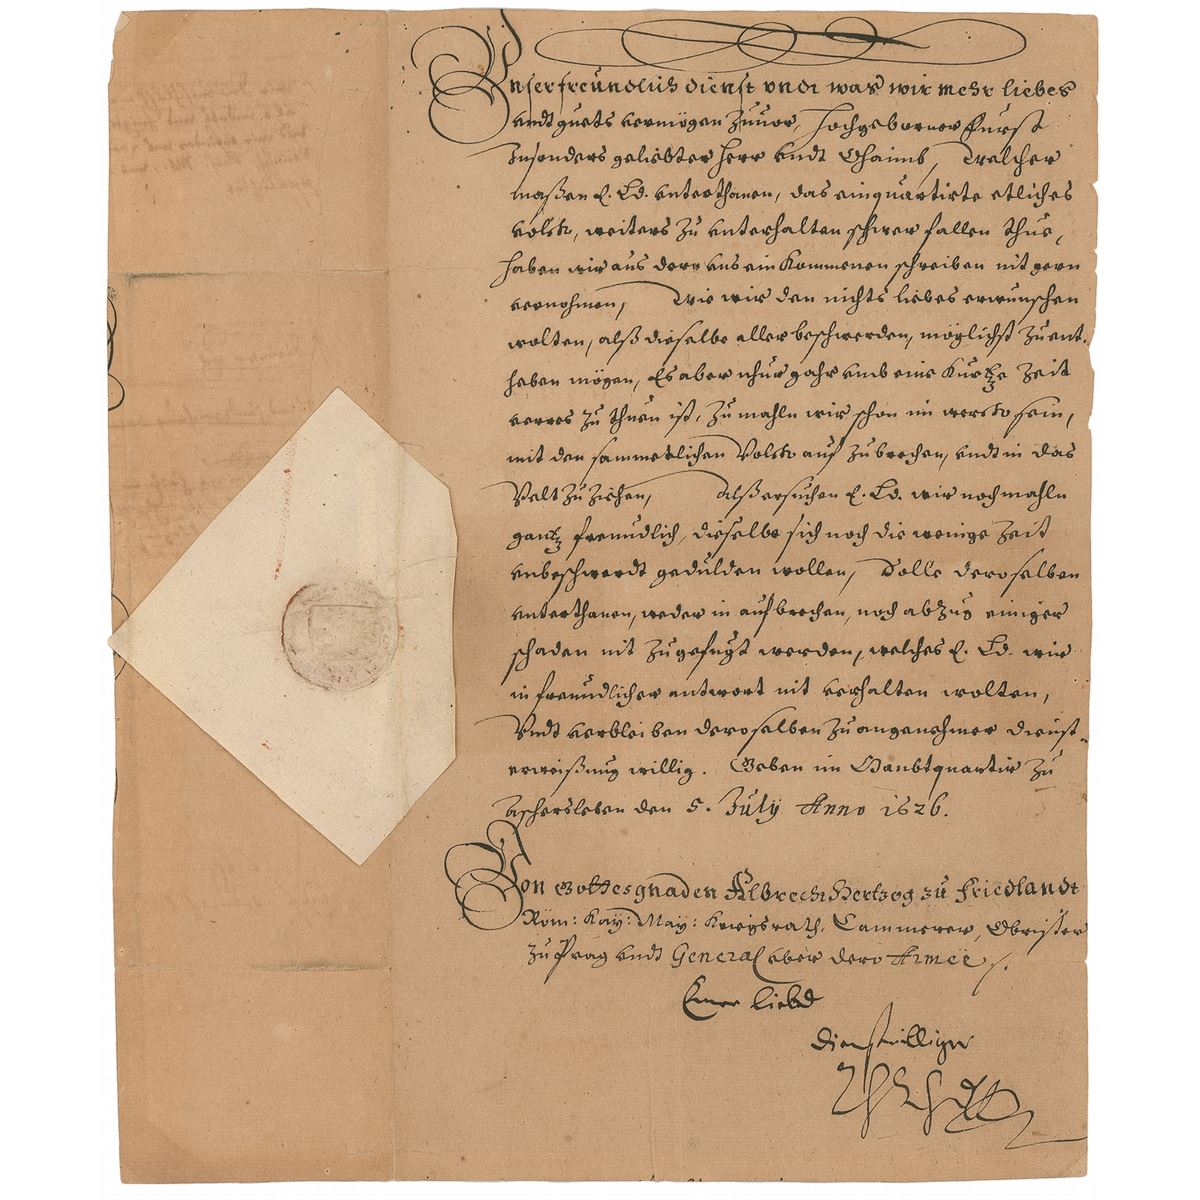 Unser freundlich dienst undt was wir mehr liebes
undt guets vermögen Zuuor, Hochgeborner Furst
Insonders geliebter Herr undt Ohaimb, Welcher
maßen E. Ld. unterthanen, das einquartirte etliches
Volck, weiters Zu unterhalten schwer fallen thue,
haben wir aus dero uns ein Kommenen schreiben nit gern
vernohmen, Wie wir den nichts liebes erwunschen
wolten, alß dieselbe aller beschwerden, möglichst Zu ent-
heben mögen, Es aber nhur gahr umb eine Kurtze Zeit
Zu thuen ist, Zu mahln wir schon im werck sein,
mit den sammetlichen Volck auf Zu brechen, undt in das
Velt Zu Ziehen, Alß ersuchen E. Ld. wir nochmahln
gantz freundlich, dieselbe sich noch die wenige Zeit
unbeschwerdt gedulden wollen, Solle deroselben
unterthanen, weder in aufbrechen, noch abZug einiger
schaden nit Zugefugt werden, welches E. Ld. wir
in freundlicher antwort nit verhalten wolten,
Undt verbleiben deroselben Zu angenehmer dienst-
erweißung willig. Geben im Haubtquartir Zu
Aschersleben den 5. July Anno 1626.
Von Gottes gnaden Albrecht Hertzog zu Friedlandt
Röm: Kay: May: Kriegsrath, Cammerer, Obrister
Zu Prag undt General uber dero Armee
Euer Liebd
dienstwilliger